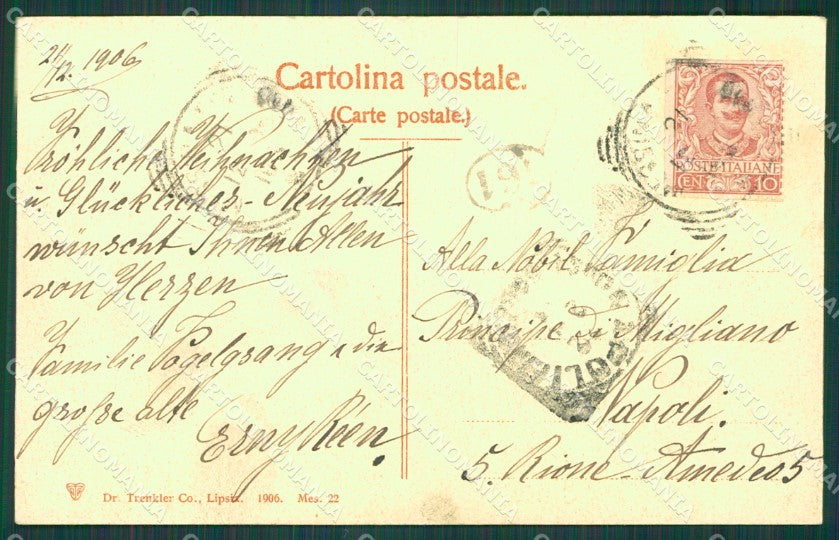 21/12. 1906
Cartolina postale.
(Carte postale.)
Fröhliche Weihnachten
u. Glückliches Neujahr
wünscht Ihnen Allen
von Herzen
Familie Vogelgsang u die
große alte
Erny Kéen.
POSTE ITALIANE
CEN 10
MESSINA
21
NAPOLI
Alla Nobil Famiglia
Principe di Migliano
Napoli.
5. Rione Amedeo 5
Dr. Trenkler Co., Lipsia. 1906. Mes. 22
CARTOLINOMANIA